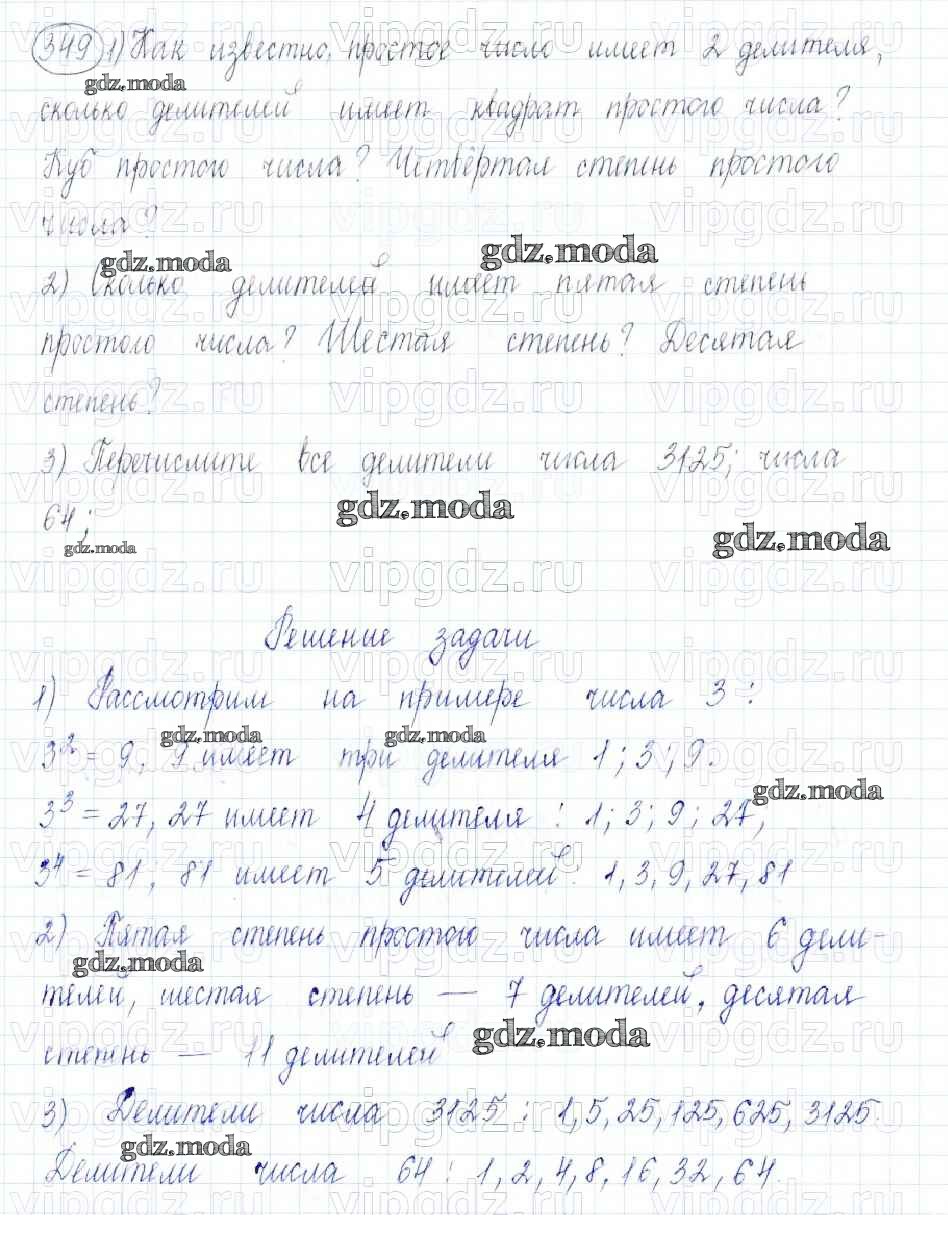 349 1) Как известно, простое число имеет 2 делителя,
сколько делителей имеет квадрат простого числа?
Куб простого числа? Четвёртая степень простого
числа?
2) Сколько делителей имеет пятая степень
простого числа? Шестая степень? Десятая
степень?
3) Перечислите все делители числа 3125; числа
64;
Решение задачи
1) Рассмотрим на примере числа 3:
3² = 9, 9 имеет три делителя 1; 3; 9.
3³ = 27, 27 имеет 4 делителя: 1; 3; 9; 27,
3⁴ = 81, 81 имеет 5 делителей: 1, 3, 9, 27, 81
2) Пятая степень простого числа имеет 6 дели-
телей, шестая степень — 7 делителей, десятая
степень — 11 делителей
3) Делители числа 3125: 1, 5, 25, 125, 625, 3125.
Делители числа 64: 1, 2, 4, 8, 16, 32, 64.
gdz.moda
vipgdz.ru